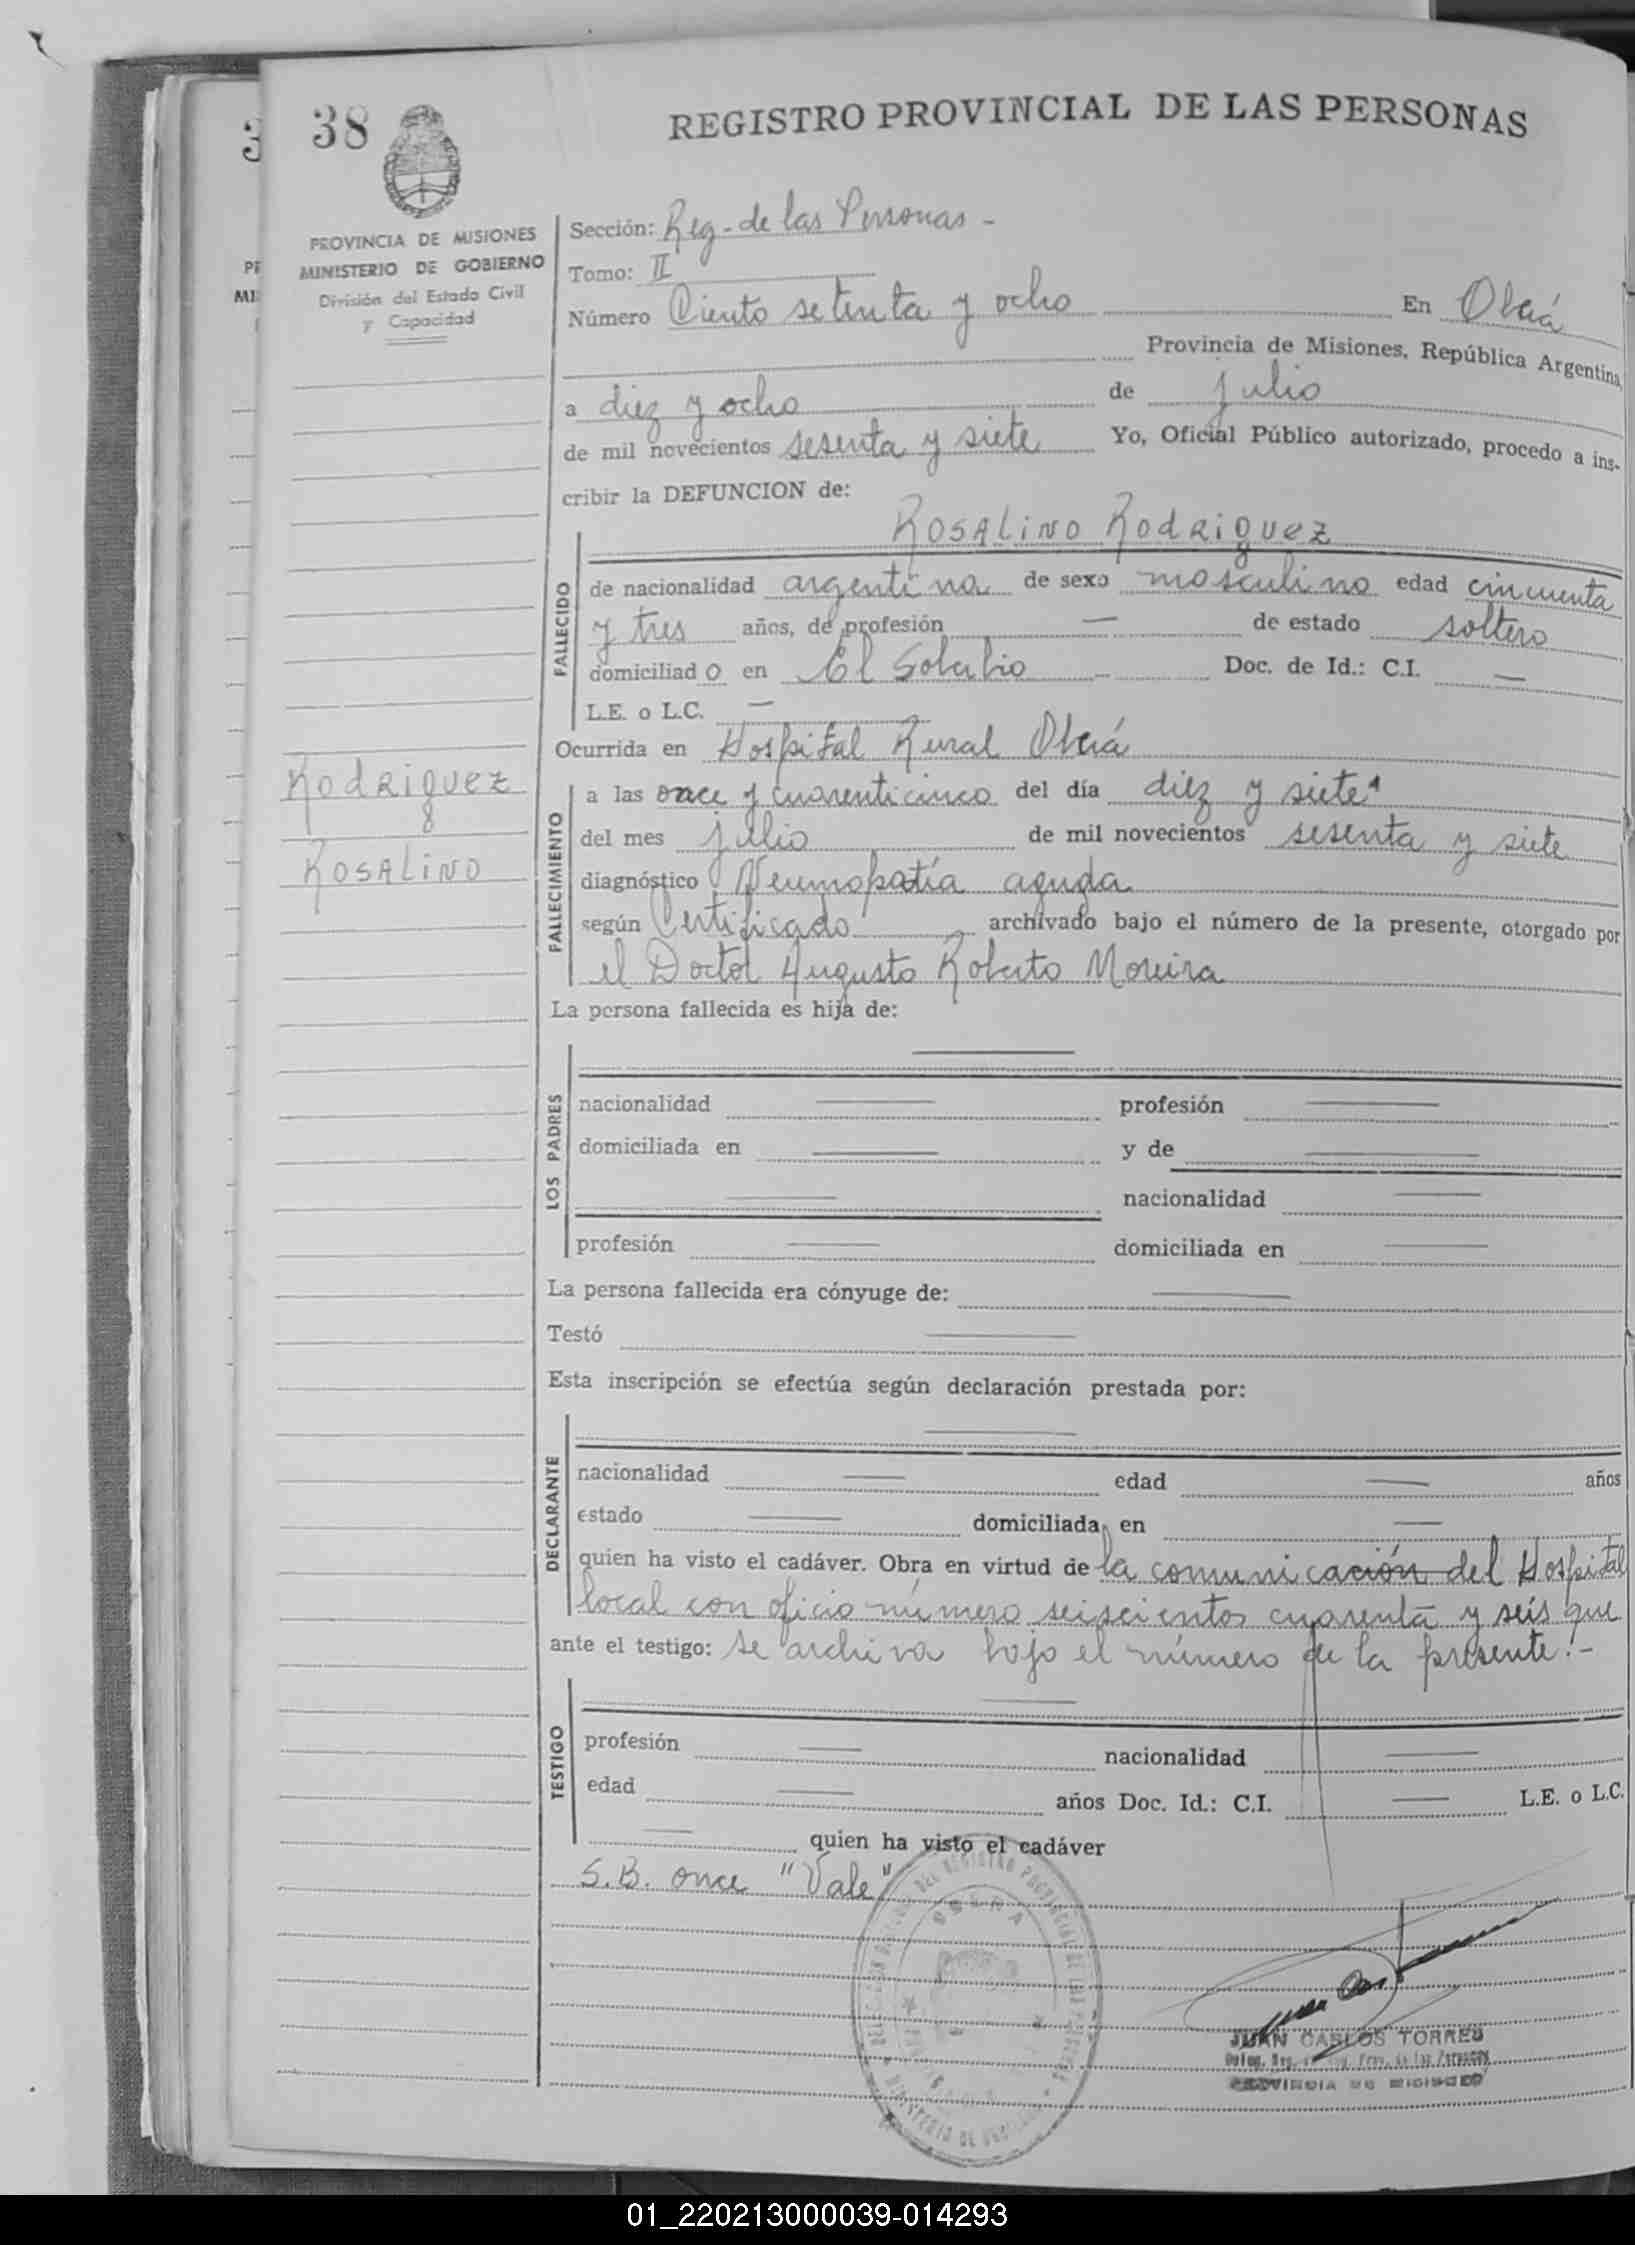 38
REGISTRO PROVINCIAL DE LAS PERSONAS
PROVINCIA DE MISIONES
MINISTERIO DE GOBIERNO
División del Estado Civil
y Capacidad
Sección: Reg. de las Personas -
Tomo: II
Número Ciento setenta y ocho En Oberá
Provincia de Misiones, República Argentina,
a diez y ocho de julio
de mil novecientos sesenta y siete Yo, Oficial Público autorizado, procedo a ins-
cribir la DEFUNCION de:
ROSALINO RODRIGUEZ
FALLECIDO
de nacionalidad argentina de sexo masculino edad cincuenta
y tres años, de profesión — de estado soltero
domiciliado en El Soberbio Doc. de Id.: C.I. —
L.E. o L.C. —
Ocurrida en Hospital Rural Oberá
Rodriguez
Rosalino
FALLECIMIENTO
a las once y cuarenticinco del día diez y siete
del mes julio de mil novecientos sesenta y siete
diagnóstico Neumopatía aguda
según Certificado archivado bajo el número de la presente, otorgado por
el Doctor Augusto Roberto Moreira
La persona fallecida es hija de:
LOS PADRES
nacionalidad — profesión —
domiciliada en — y de —
— nacionalidad —
profesión — domiciliada en —
La persona fallecida era cónyuge de: —
Testó —
Esta inscripción se efectúa según declaración prestada por:
DECLARANTE
nacionalidad — edad — años
estado — domiciliada en —
quien ha visto el cadáver. Obra en virtud de la comunicación del Hospital
local con oficio número seiscientos cuarenta y seis que
ante el testigo: se archiva bajo el número de la presente.-
TESTIGO
profesión — nacionalidad —
edad — años Doc. Id.: C.I. — L.E. o L.C.
— quien ha visto el cadáver
S.B. once "Vale"
OBERA
JUAN CARLOS TORRES
PROVINCIA DE MISIONES
01_220213000039-014293